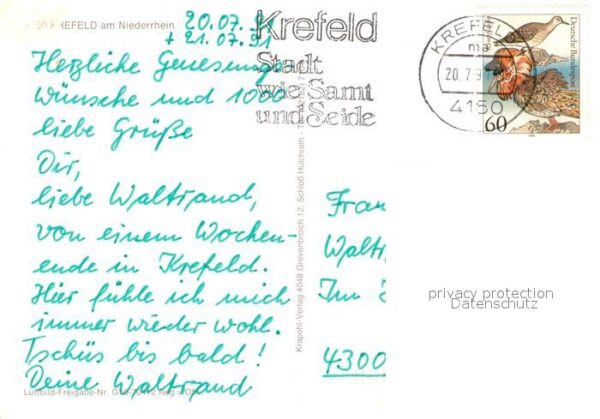 4150 KREFELD am Niederrhein
20.07.91
+ 21.07.91
Herzliche Genesungs-
wünsche und 1000
liebe Grüße
Dir,
liebe Waltraud,
von einem Wochen-
ende in Krefeld.
Hier fühle ich mich
immer wieder wohl.
Tschüs bis bald!
Deine Waltraud
Luftbild-Freigabe-Nr.
Krapohl-Verlag 4048 Grevenbroich 12, Schloß Hülchrath
Krefeld
Stadt
wie Samt
und Seide
KREFELD
20.7.9
4150
Deutsche Bundespost
60
Frau
Waltr
Im
4300
privacy protection
Datenschutz